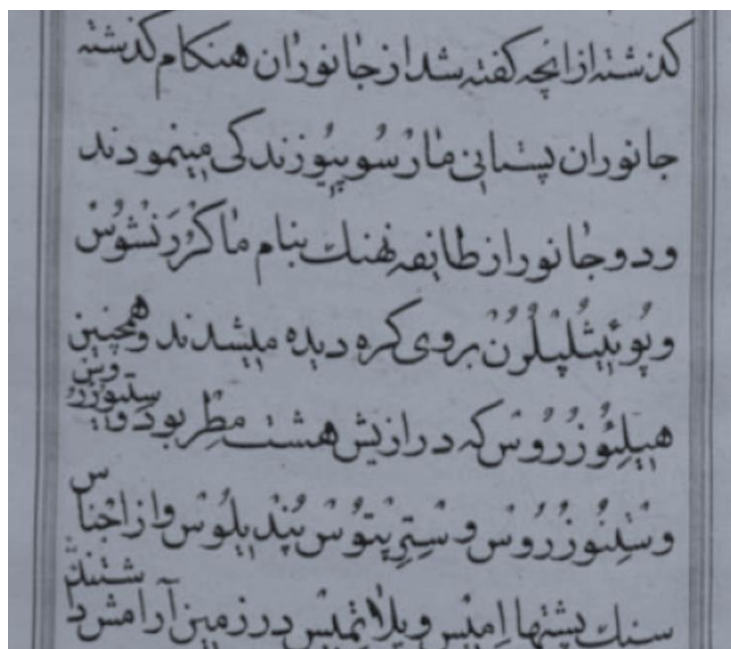 گذشته از انچه گفته شد از جانوران هنگام گذشته
جانوران پستانی مارسوپیو زندگی مینمودند
و دو جانور از طایفه نهنك بنام ماکرُرَنشوُسْ
و پُوئیثُلپلُرُنْ بروی کره دیده میشدند و همچنین
هیلئوُزُرُوسْ که در ازیش هشت مطِر بود و
وستنوُزرُوسْ و ستِرپتوُسْ پُندیلوُسْ و از اجناس
سنك پشتها اِمیسْ و پلاتمیسْ در زمین آرامش داشتند